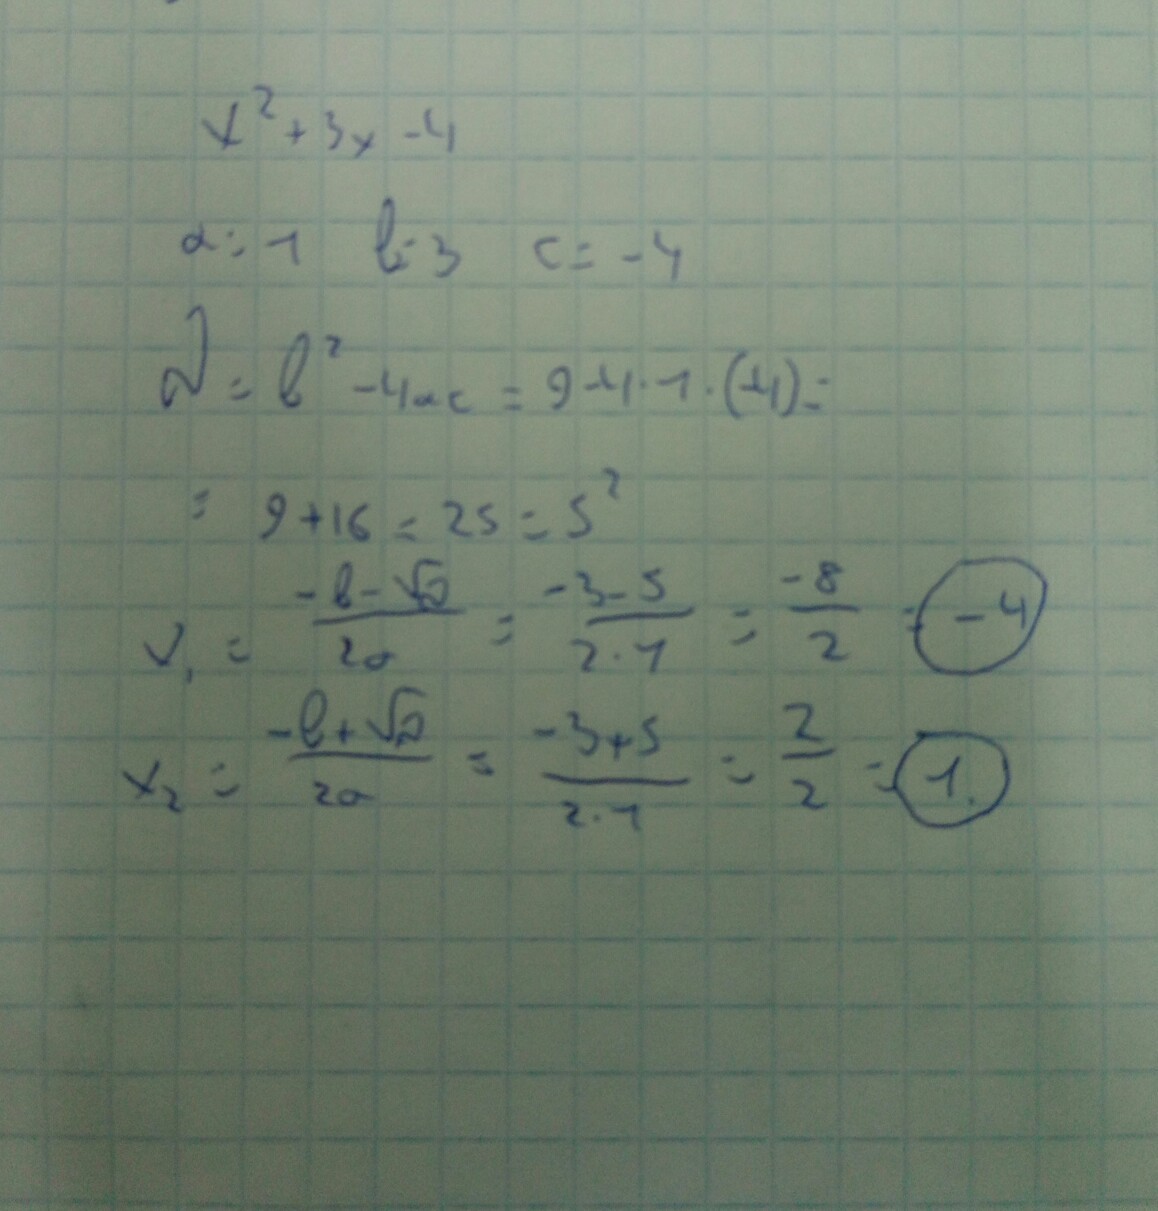 x² + 3x - 4
a = 1 b = 3 c = -4
D = b² - 4ac = 9 - 4 · 1 · (-4) =
= 9 + 16 = 25 = 5²
x₁ = (-b - √D)/(2a) = (-3 - 5)/(2 · 1) = (-8)/2 = -4
x₂ = (-b + √D)/(2a) = (-3 + 5)/(2 · 1) = 2/2 = 1.